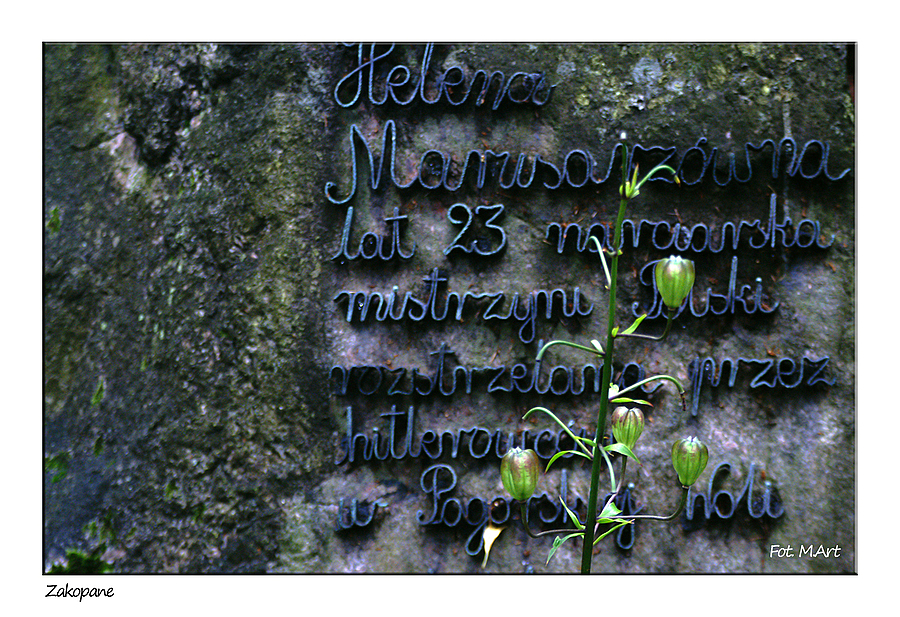 Helena
Marusarzówna
lat 23 narciarska
mistrzyni Polski
rozstrzelana przez
hitlerowców
w Pogorskiej Woli
Fot. M.Art
Zakopane